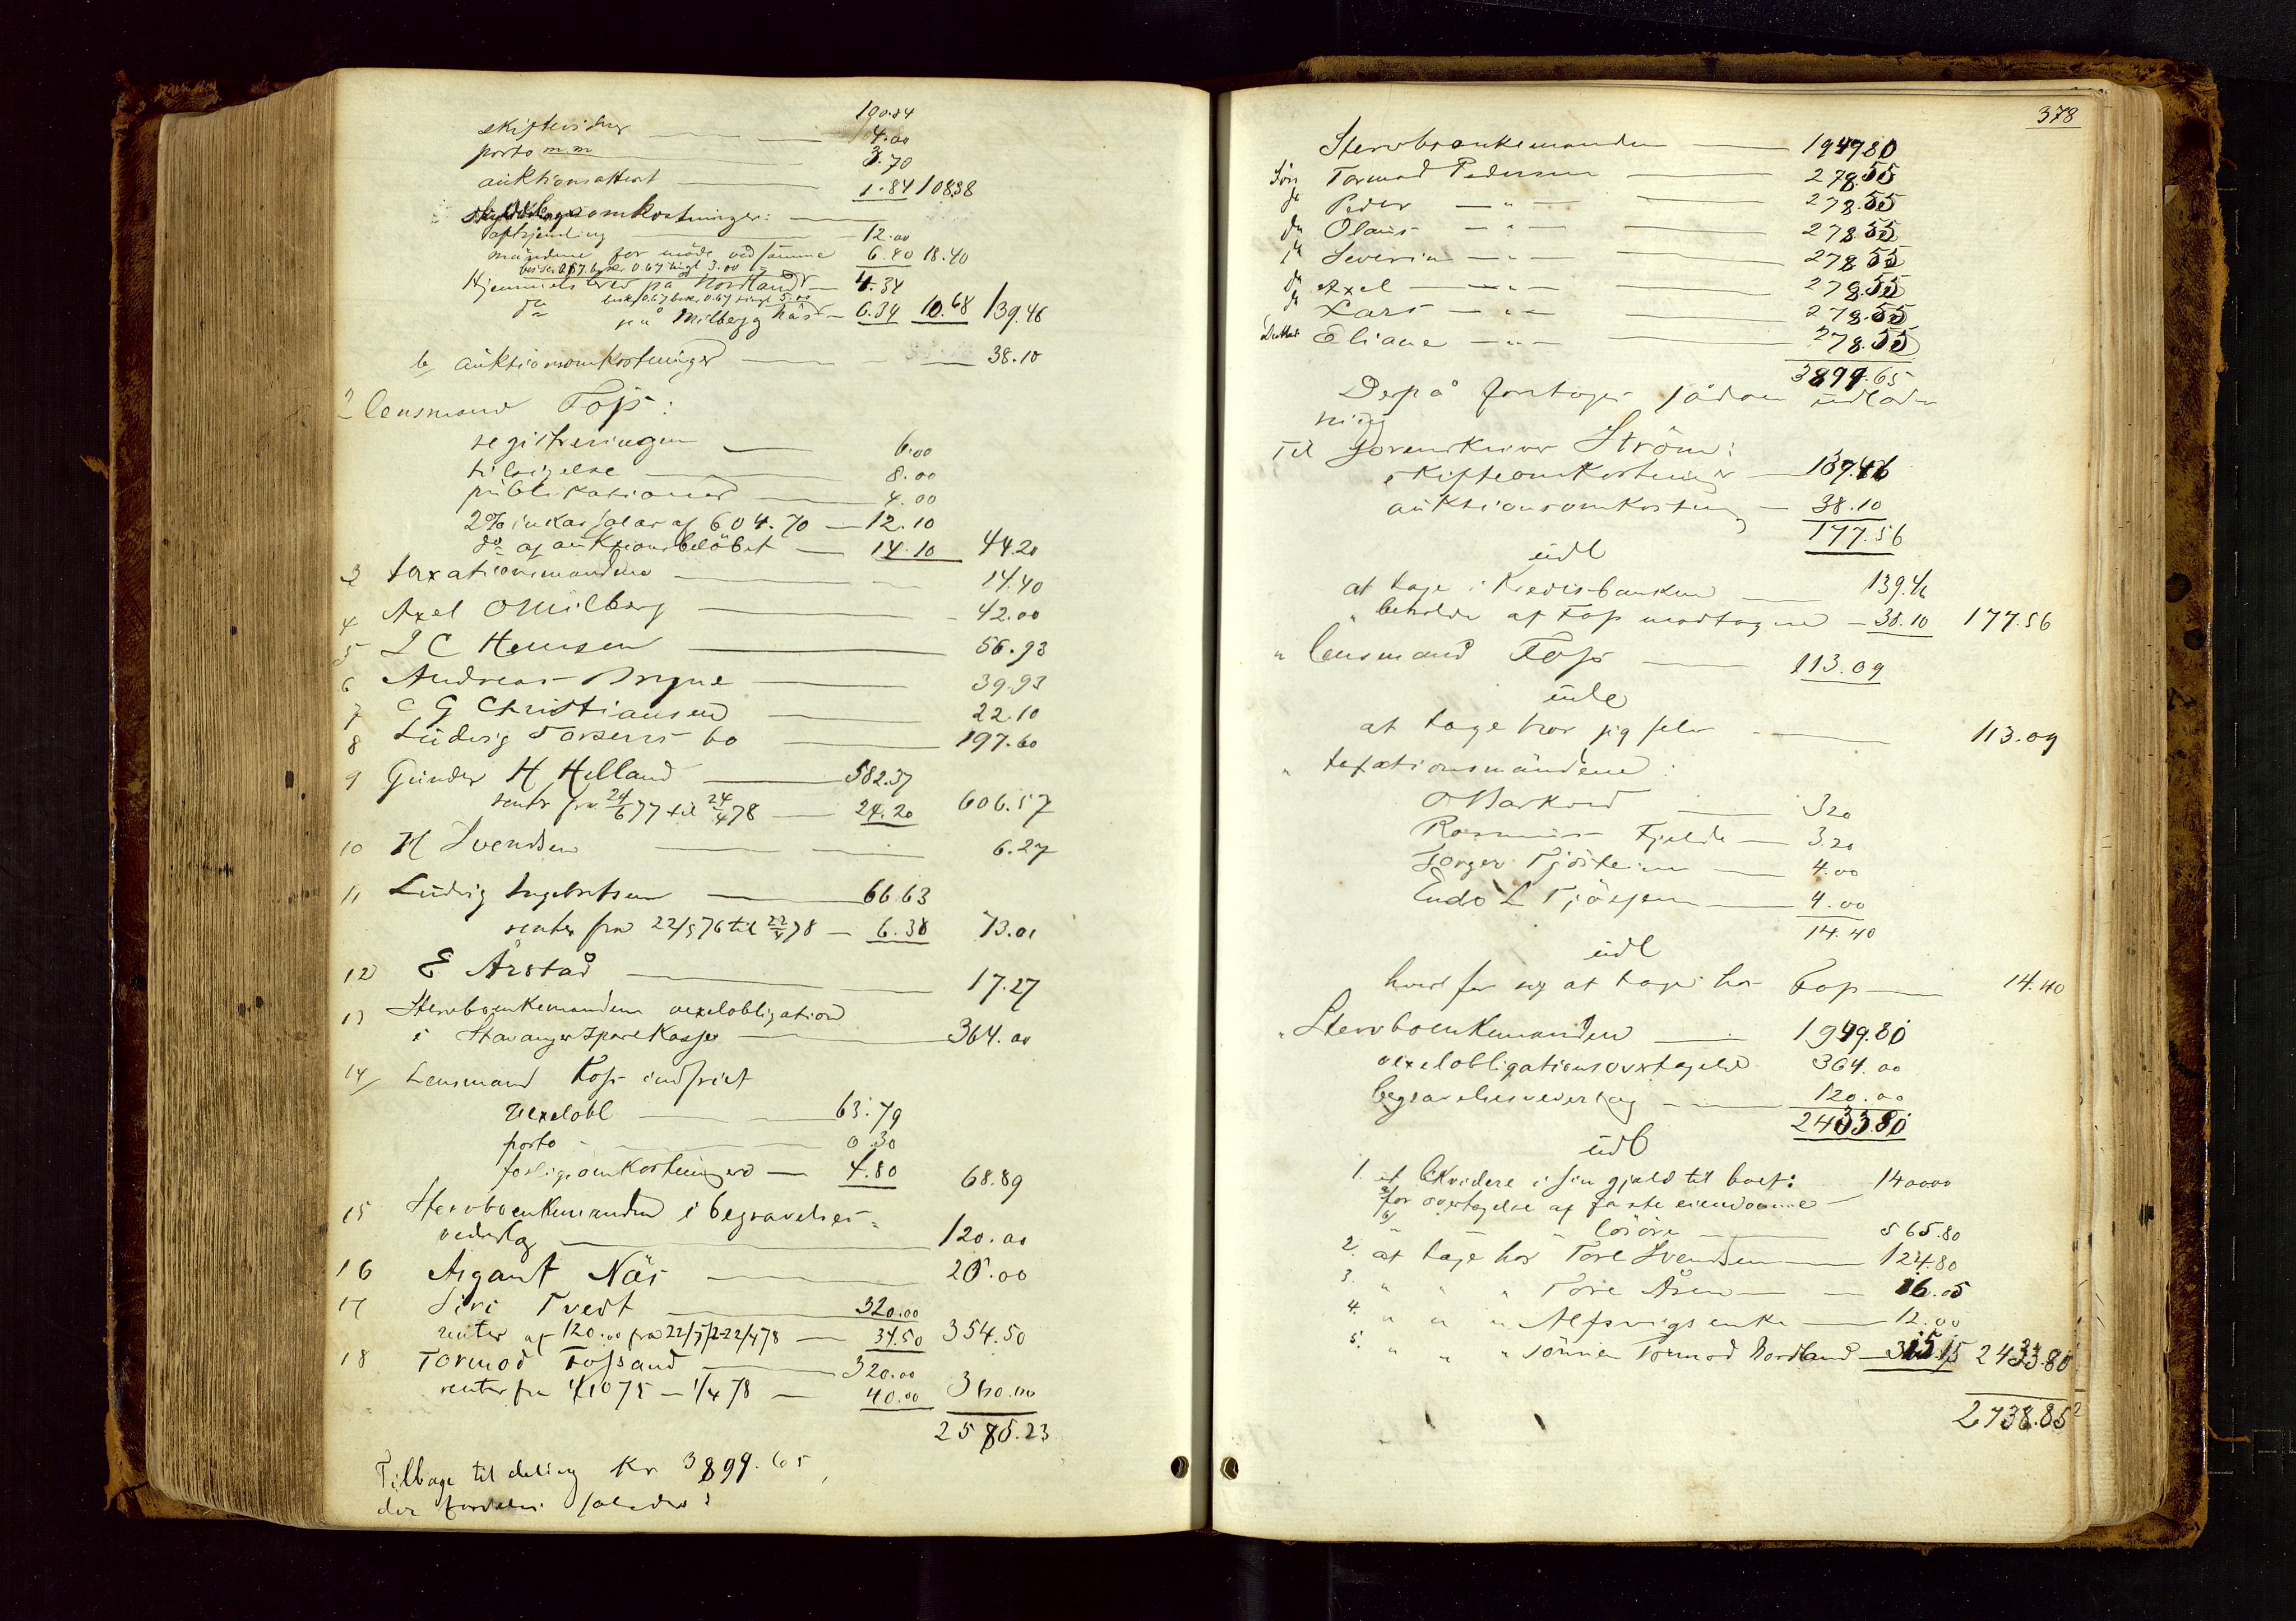 190.84
skiftevidner 4.00
porto m.m 3.70
auktionsattest 1.84 108.38
omkostninger:
12.00
mændene for møde ved samme 6.40 18.40
besk 0.67 3.00
Hjemmelsbrev på Nordland 4.34
do besk 0.67 0.67 5.00
på Milberg Näs 6.34 10.68 139.46
b, auktionsomkostninger 38.10
2 lensmand Foss:
registreringen 6.00
tilsigelse 8.00
publikationer 4.00
2% inkassalar af 604.70 12.10
do af auktionsbeløbet 14.10 44.20
3 taxationsmændene 14.40
4 Axel O Milberg 42.00
5 L C Hansen 56.93
6 Andreas Bryne 39.93
7 C G Christiansen 22.10
8 Ludvig Torsens bo 197.60
9 Gunder H Helland 582.37
renter fra 24/6 77 til 24/4 78 24.20 606.57
10 H Svendsen 6.27
11 Ludvig Ingebretsen 66.63
renter fra 22/5 76 til 22/4 78 6.38 73.01
12 E Årstad 17.27
13 Stervboenkemandens vexelobligation
i Stavanger Sparekasse 364.00
14, Lensmand Foss indfriet
vexelobl 63.79
porto 0.30
forligsomkostninger 4.80 68.89
15 Stervboenkemanden i begravelses-
vederlag 120.00
16 Asgaut Näs 20.00
17 Siri Tvedt 320.00
renter af 120.00 fra 22/5 72-22/4 78 34.50 354.50
18 Tormod Fossand 320.00
renter fra 1/10 75 - 1/4 78 40.00 360.00
2585.23
Tilbage til deling Kr 3899.65
der fordeles således:
378
Stervboenkemanden 1949.80
Søn Tormod Pedersen 278.55
do Peder - " - 278.55
do Olaus - " - 278.55
do Severin - " - 278.55
do Axel - " - 278.55
do Lars - " - 278.55
Datter Eliane - " - 278.55
3899.65
Derpå foretages sådan udlæg-
ning
Til sorenskriver Ström:
skifteomkostninger 139.46
auktionsomkostning 38.10
177.56
udl
at tage i Kreditbanken 139.46
" beholde af Foss modtagne 38.10 177.56
" lensmand Foss 113.09
udl
at tage hos sig selv 113.09
" taxationsmændene:
3.20
Rasmus Fjelde 3.20
Torger Tjöstheim 4.00
Endo L 4.00
14.40
udl
hver for sig at tage hos Foss 14.40
" Stervboenkemanden 1949.80
vexelobligationsovertagelse 364.00
begravelsesvederlag 120.00
2433.80
udl
1. at likvidere i sin gjeld til boet:
a/ for overtagelse af faste eiendomme 1400.00
b/ " " løsøre 565.80
2. at tage hos Tore Svendsen 124.80
3. " " " Tore Åsen 16.05
4. " " " Alfsvigs enke 12.00
5. " " " sönnen Tormod Nordland 315.15 2433.80
2738.85